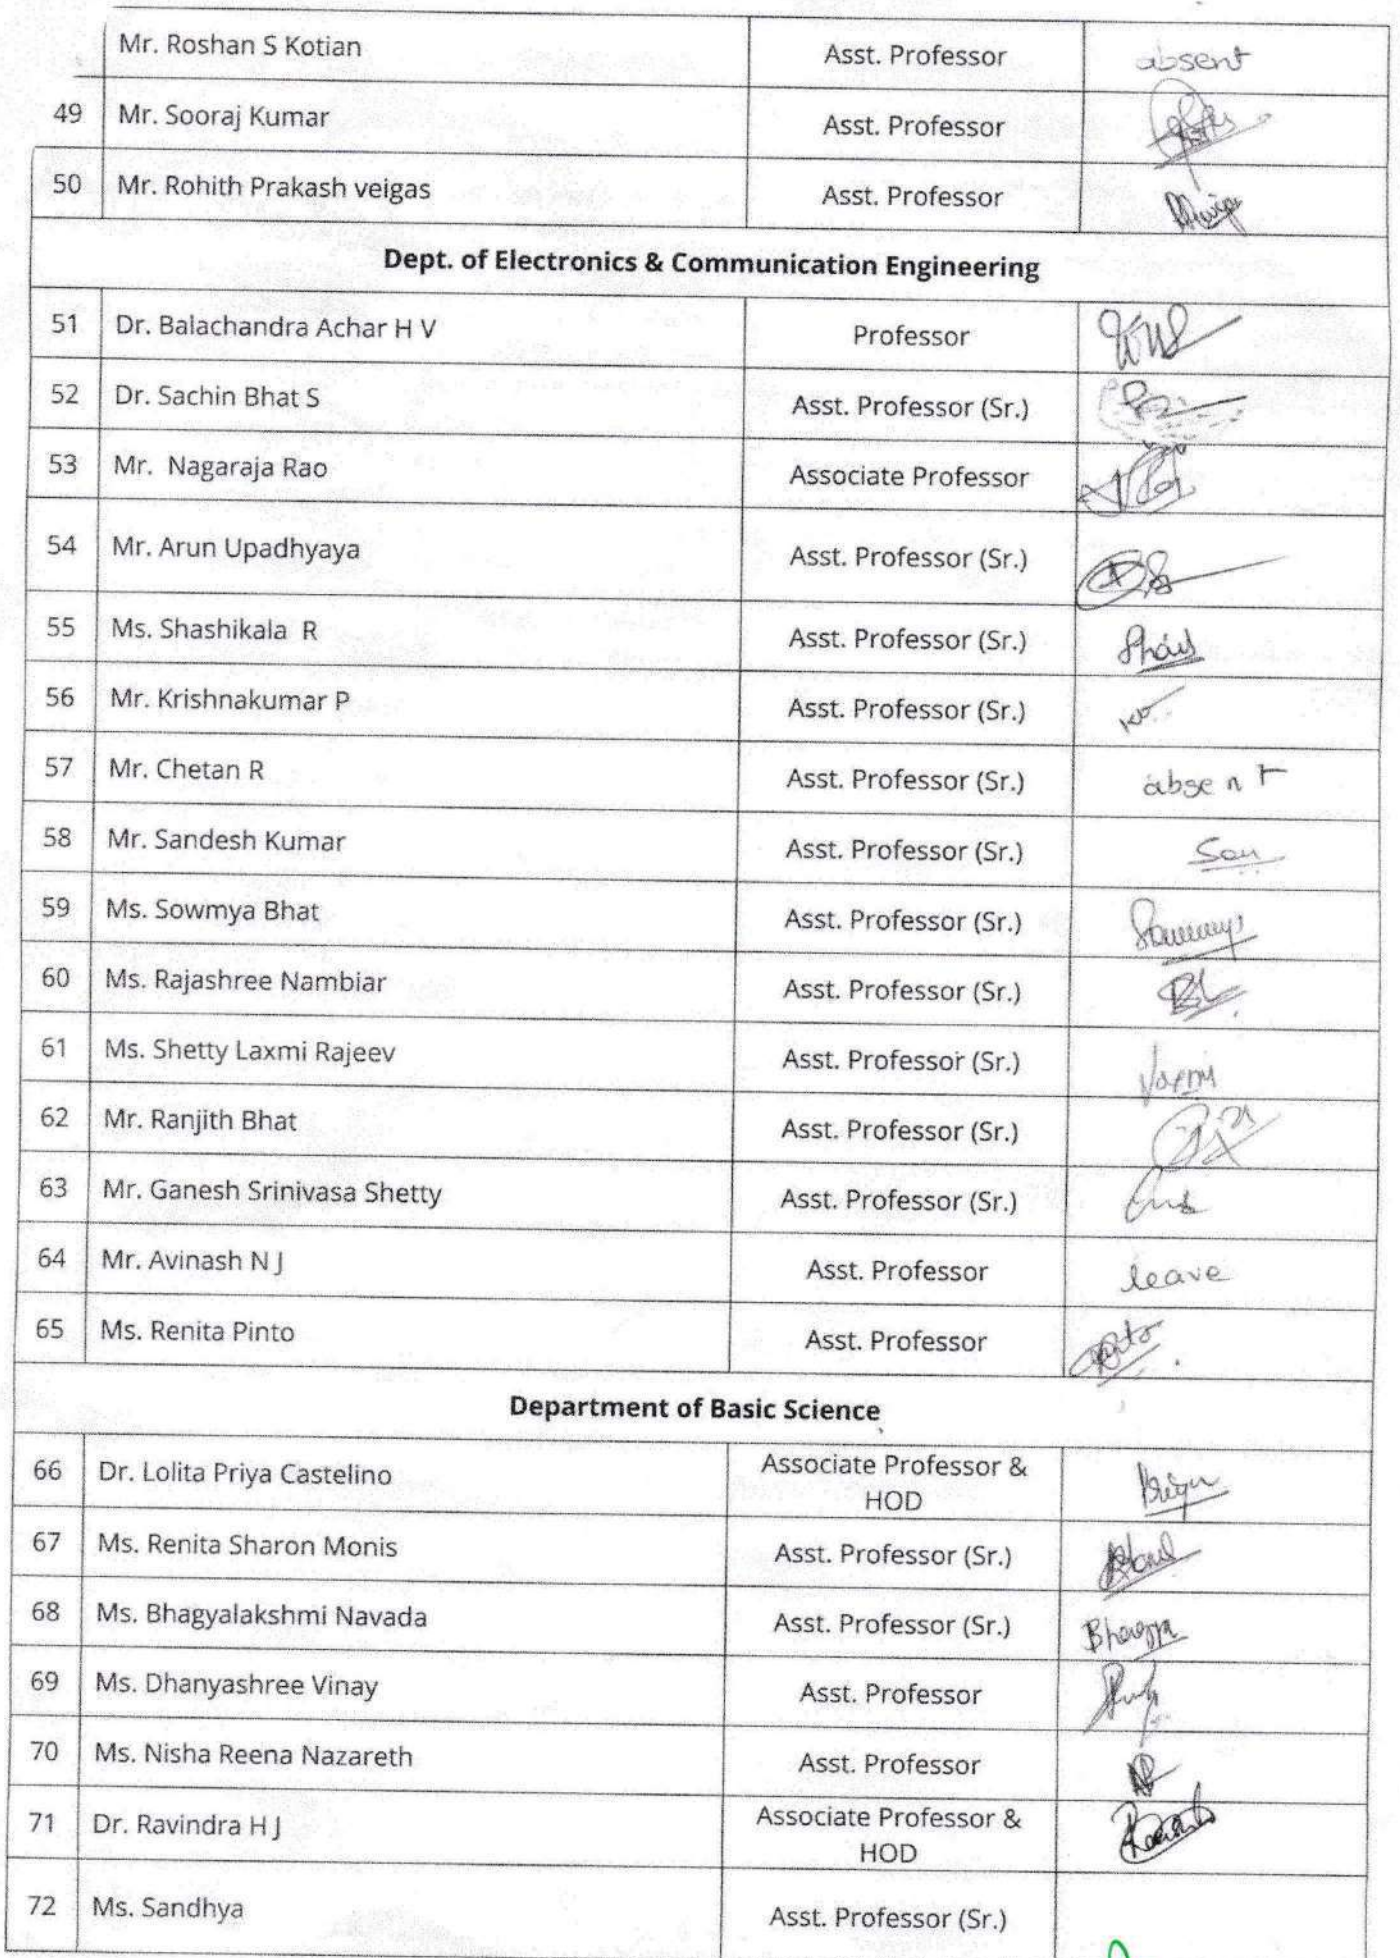 Mr. Roshan S Kotian Asst. Professor absent
49 Mr. Sooraj Kumar Asst. Professor
50 Mr. Rohith Prakash veigas Asst. Professor
Dept. of Electronics & Communication Engineering
51 Dr. Balachandra Achar H V Professor
52 Dr. Sachin Bhat S Asst. Professor (Sr.)
53 Mr. Nagaraja Rao Associate Professor
54 Mr. Arun Upadhyaya Asst. Professor (Sr.)
55 Ms. Shashikala R Asst. Professor (Sr.)
56 Mr. Krishnakumar P Asst. Professor (Sr.)
57 Mr. Chetan R Asst. Professor (Sr.) absent
58 Mr. Sandesh Kumar Asst. Professor (Sr.)
59 Ms. Sowmya Bhat Asst. Professor (Sr.)
60 Ms. Rajashree Nambiar Asst. Professor (Sr.)
61 Ms. Shetty Laxmi Rajeev Asst. Professor (Sr.)
62 Mr. Ranjith Bhat Asst. Professor (Sr.)
63 Mr. Ganesh Srinivasa Shetty Asst. Professor (Sr.)
64 Mr. Avinash N J Asst. Professor leave
65 Ms. Renita Pinto Asst. Professor
Department of Basic Science
66 Dr. Lolita Priya Castelino Associate Professor &
HOD
67 Ms. Renita Sharon Monis Asst. Professor (Sr.)
68 Ms. Bhagyalakshmi Navada Asst. Professor (Sr.)
69 Ms. Dhanyashree Vinay Asst. Professor
70 Ms. Nisha Reena Nazareth Asst. Professor
71 Dr. Ravindra H J Associate Professor &
HOD
72 Ms. Sandhya Asst. Professor (Sr.)